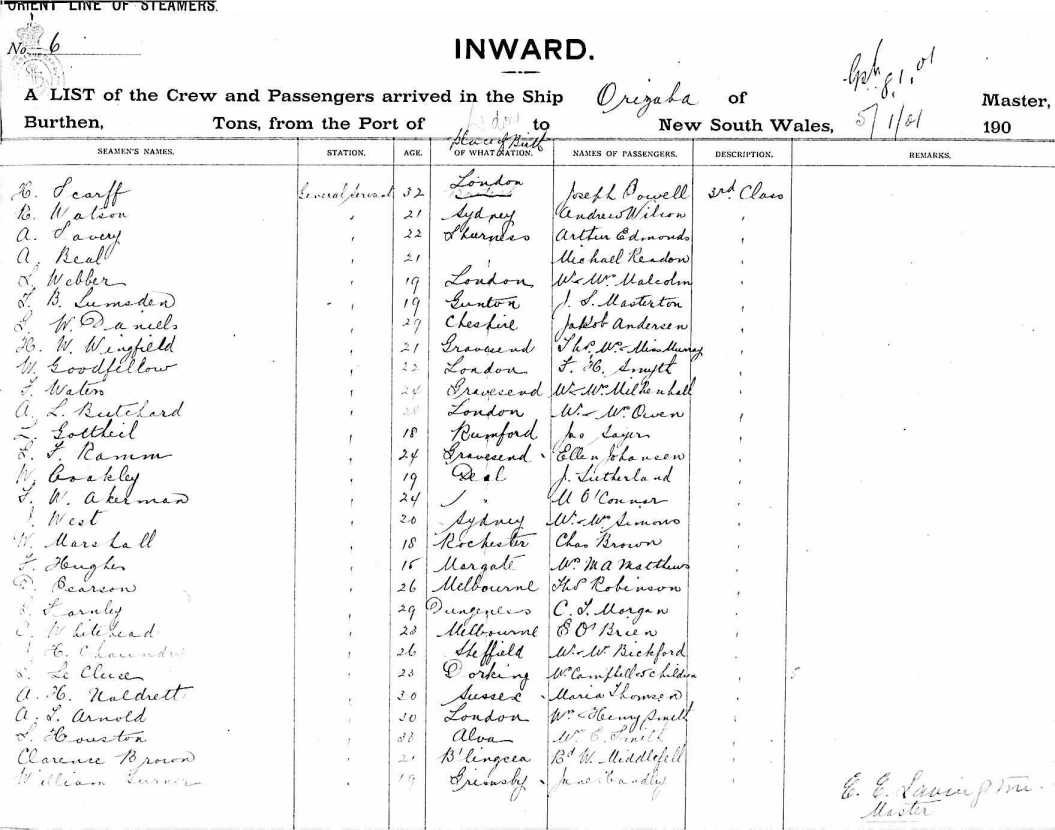 ORIENT LINE OF STEAMERS.
No. 6
INWARD.
A LIST of the Crew and Passengers arrived in the Ship Orizaba of Master,
Burthen, Tons, from the Port of to New South Wales, 5/1/01 190
SEAMEN'S NAMES. STATION. AGE. Place of Birth OF WHAT NATION. NAMES OF PASSENGERS. DESCRIPTION. REMARKS.
H. Scarff General Servant 32 London Joseph Powell 3rd Class
R. Watson " 21 Sydney Andrew Wilson "
A. Savery " 22 Shurness Arthur Edmonds "
A. Beal " 21 " Michael Readon "
L. Webber " 19 London Mr & Mrs Malcolm "
T. B. Lumsden " 19 Gunton J. S. Masterton "
L. W. Daniels " 29 Cheshire Jakob Andersen "
H. W. Wingfield " 21 Gravesend Thos. Mrs & Miss Murray "
W. Goodfellow " 22 London F. H. Smyth "
F. Waters " 24 Gravesend Mr & Mrs Milkenhall "
A. L. Butchard " London Mr & Mrs Owen "
Gottheil " 18 Rumford Jas Sayer "
F. Ramm " 24 Gravesend Ellen Johansen "
W. Coakley " 19 Deal J. Sutherland "
F. W. Akerman " 24 " M O'Connor "
West " 20 Sydney Mr & Mrs Simons "
W. Marshall " 18 Rochester Chas Brown "
F. Hughes " Margate Mrs M A Matthews "
Pearson " 26 Melbourne Thos Robinson "
Farnley " 29 Dungeness C. T. Morgan "
Whitehead " Melbourne E O'Brien "
H. " 26 Sheffield Mr & Mrs Bickford "
Le Cluse " 23 Dorking Mrs Campbell & 5 children " 5
A. H. Naldrett " 20 Sussex Maria Thomsen "
A. L. Arnold " 30 London Mrs & Henry Smith "
Houston " Alva Mrs E. Smith "
Clarence Brown " 21 B'lingsea Bd W. Middlefell "
William Turner " 19 Grimsby Jane Handley "
E. E. Lavington
Master